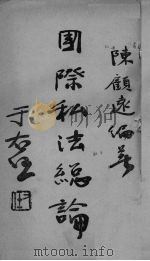 陳顧遠編著
國際私法總論
于右任
mtoou.info